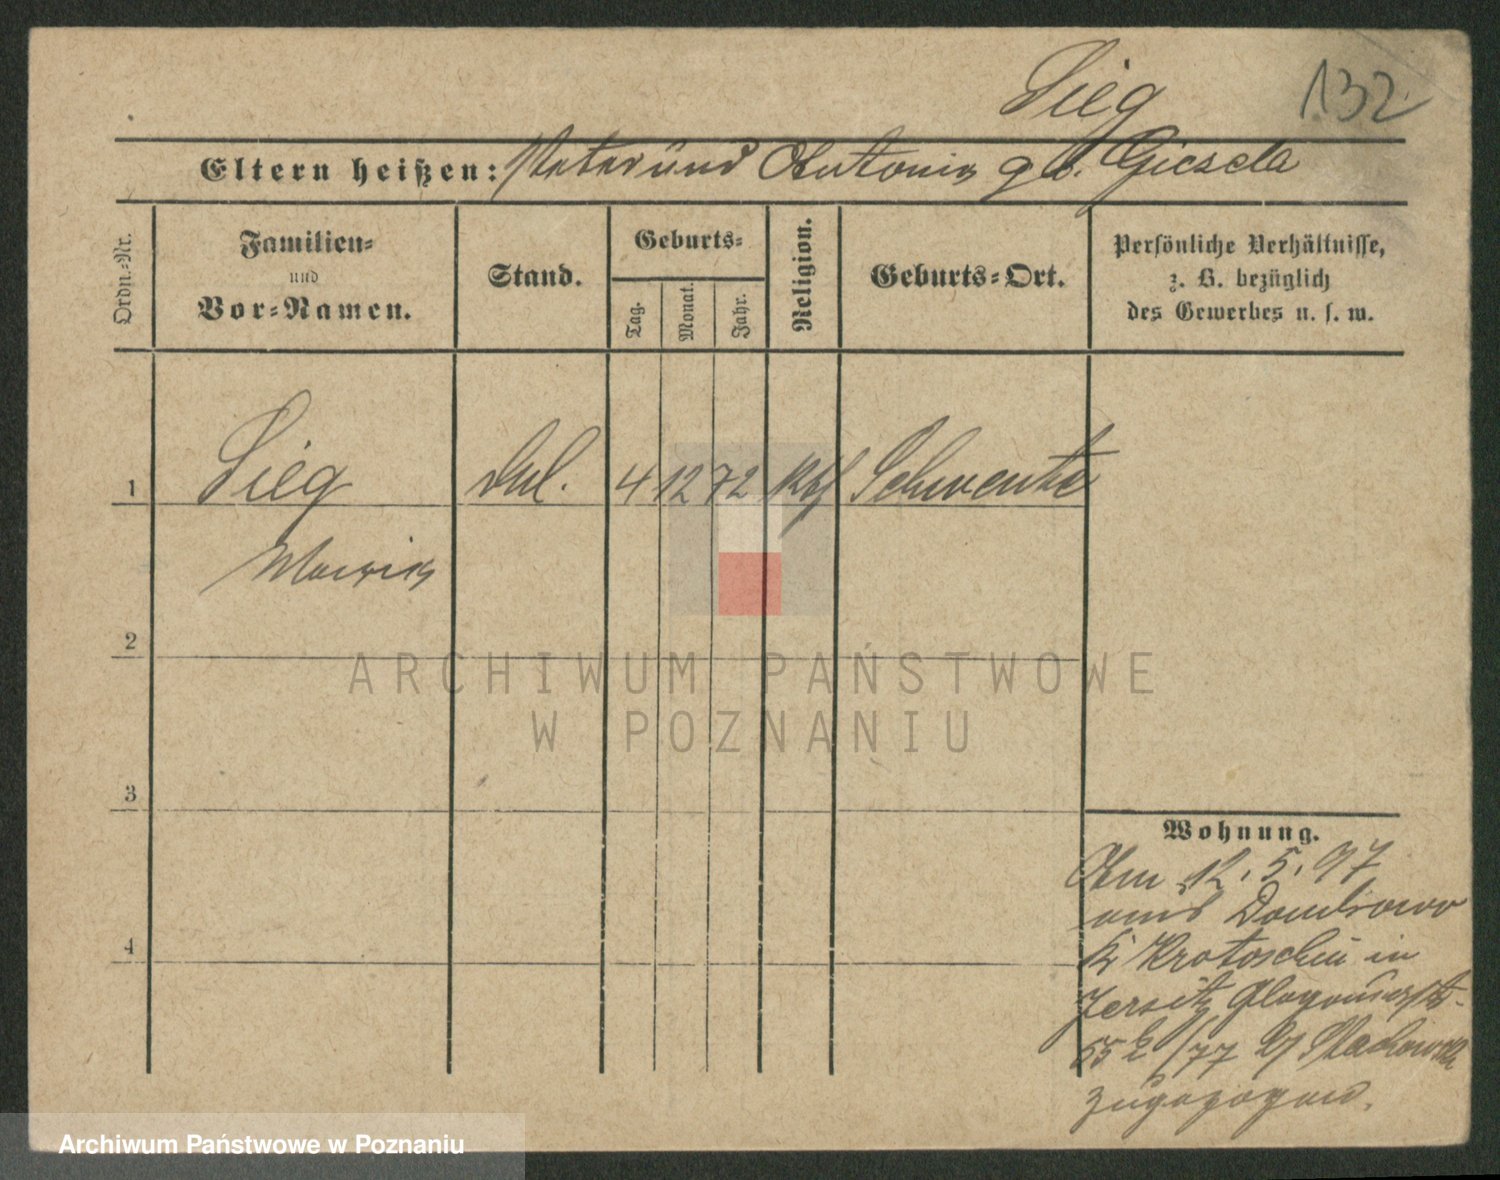 Sieg
132
Eltern heißen: Peter und Antonie geb. Giezela
Ordn.-Nr.
Familien-
und
Vor-Namen.
Stand.
Geburts-
Tag.
Monat.
Jahr.
Religion.
Geburts-Ort.
Persönliche Verhältnisse,
z. B. bezüglich
des Gewerbes u. s. w.
1 Sieg 4 12 72 kth Schwenta
Marie
2
3
4
ARCHIWUM PAŃSTWOWE
W POZNANIU
Wohnung.
Am 12. 5. 97
aus Dombrowo
K Krotoschin in
Jersitz Glogauerstr.
55 /77
zugezogen.
Archiwum Państwowe w Poznaniu